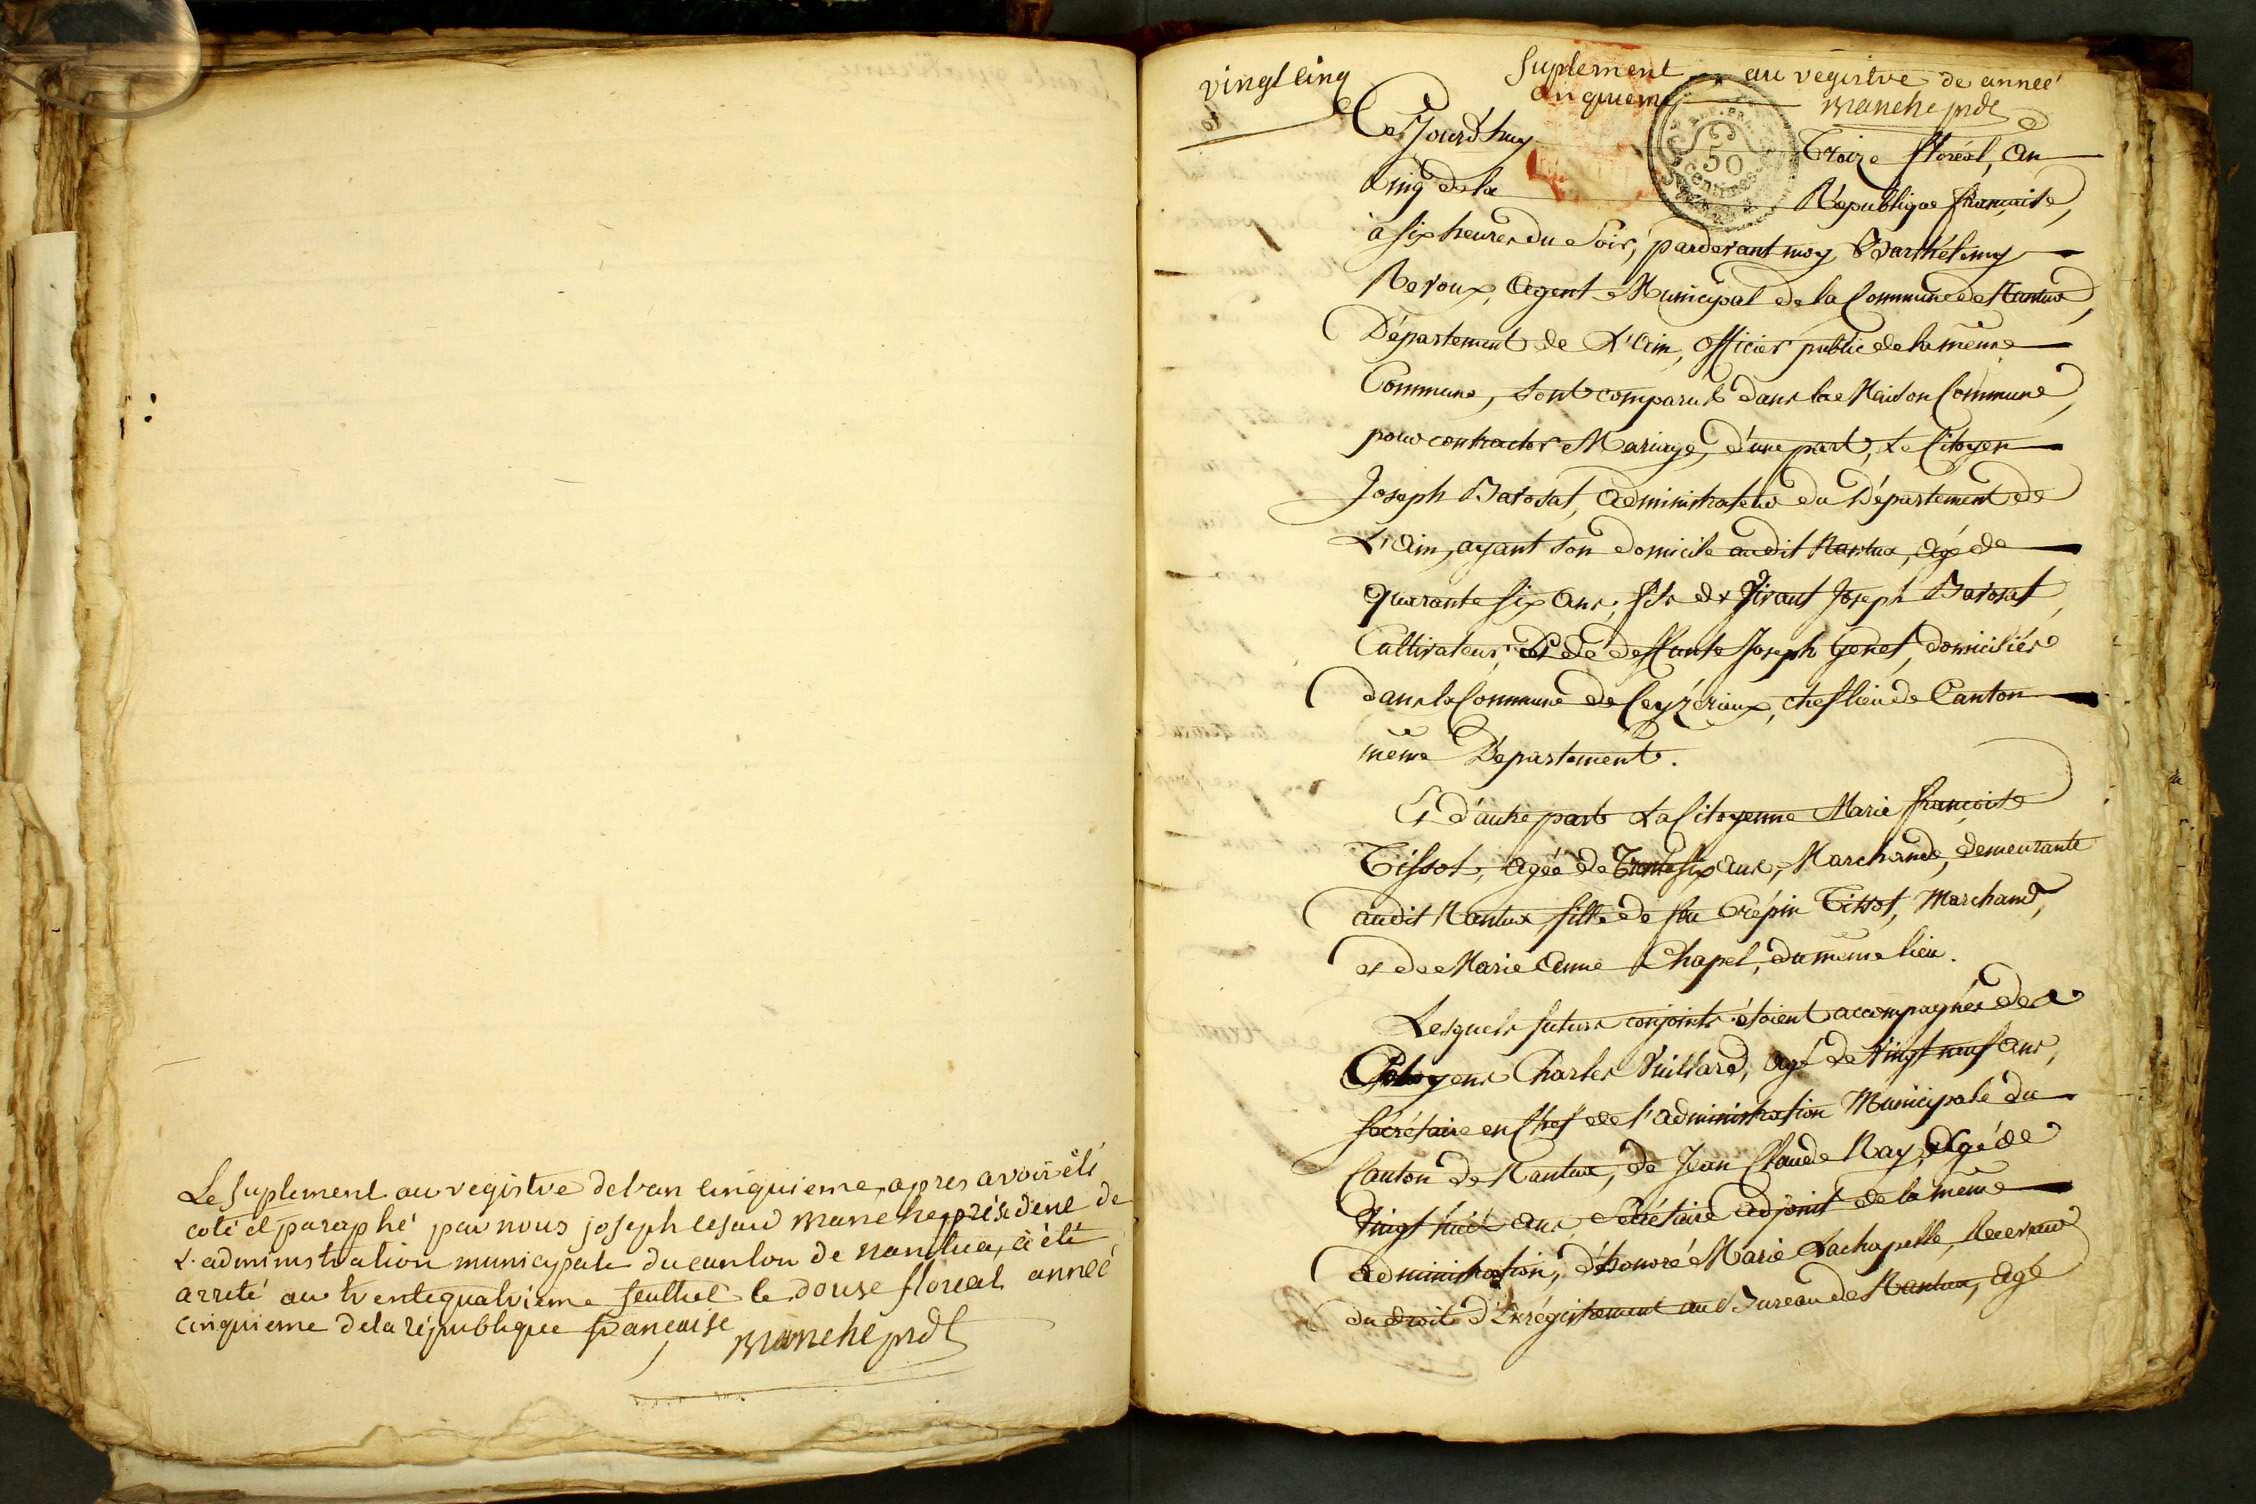 Le suplement au registre de l'an cinquieme, apres avoir été
coté et paraphé par nous joseph cesard manche président de
L'administration municipale du canton de nantua, a été
arreté au trentequatrieme feuillet le douse floreal année
cinquieme de la république française
manche pdt
vingt cinq
Suplement au registre de année
cinquieme manche pdt
50
centimes
Ce Jourd'huy Treize floréal, an
Cinq de la République française,
à six heures du Soir, pardevant moy Barthélemy
Reroux, Agent Municipal de la Commune de Nantua,
Département de L'Ain, officier public de la même
Commune, sont comparus dans la Maison Commune,
pour contracter Mariage, d'une part, Le Citoyen
Joseph Barosat, administrateur du Département de
L'Ain, ayant son domicile audit Nantua, agé de
quarante six ans, fils de vivant Joseph Barosat,
Cultivateur, et de deffunte Joseph Genet, domiciliés
dans la Commune de Ceyzériaux, cheflieu de Canton
même Département.
Et d'autre part La Citoyenne Marie françoise
Tissot, agée de Trente six ans, Marchande, demeurante
audit Nantua fille de feu Crépin Tissot, Marchand,
et de Marie Anne Chapel, du même lieu.
Lesquels futurs conjoints étoient accompagnés des
Citoyens Charles Vuillard, agé de vingt neuf ans,
Sécrétaire en Chef de l'administration Municipale du
Canton de Nantua, de Jean Claude Ray, agé de
Vingt huit ans, Sécrétaire adjoint de la même
administration, d'honoré Marie Lachapelle, Receveur
du droit d'Enrégistrement au Bureau de Nantua, agé